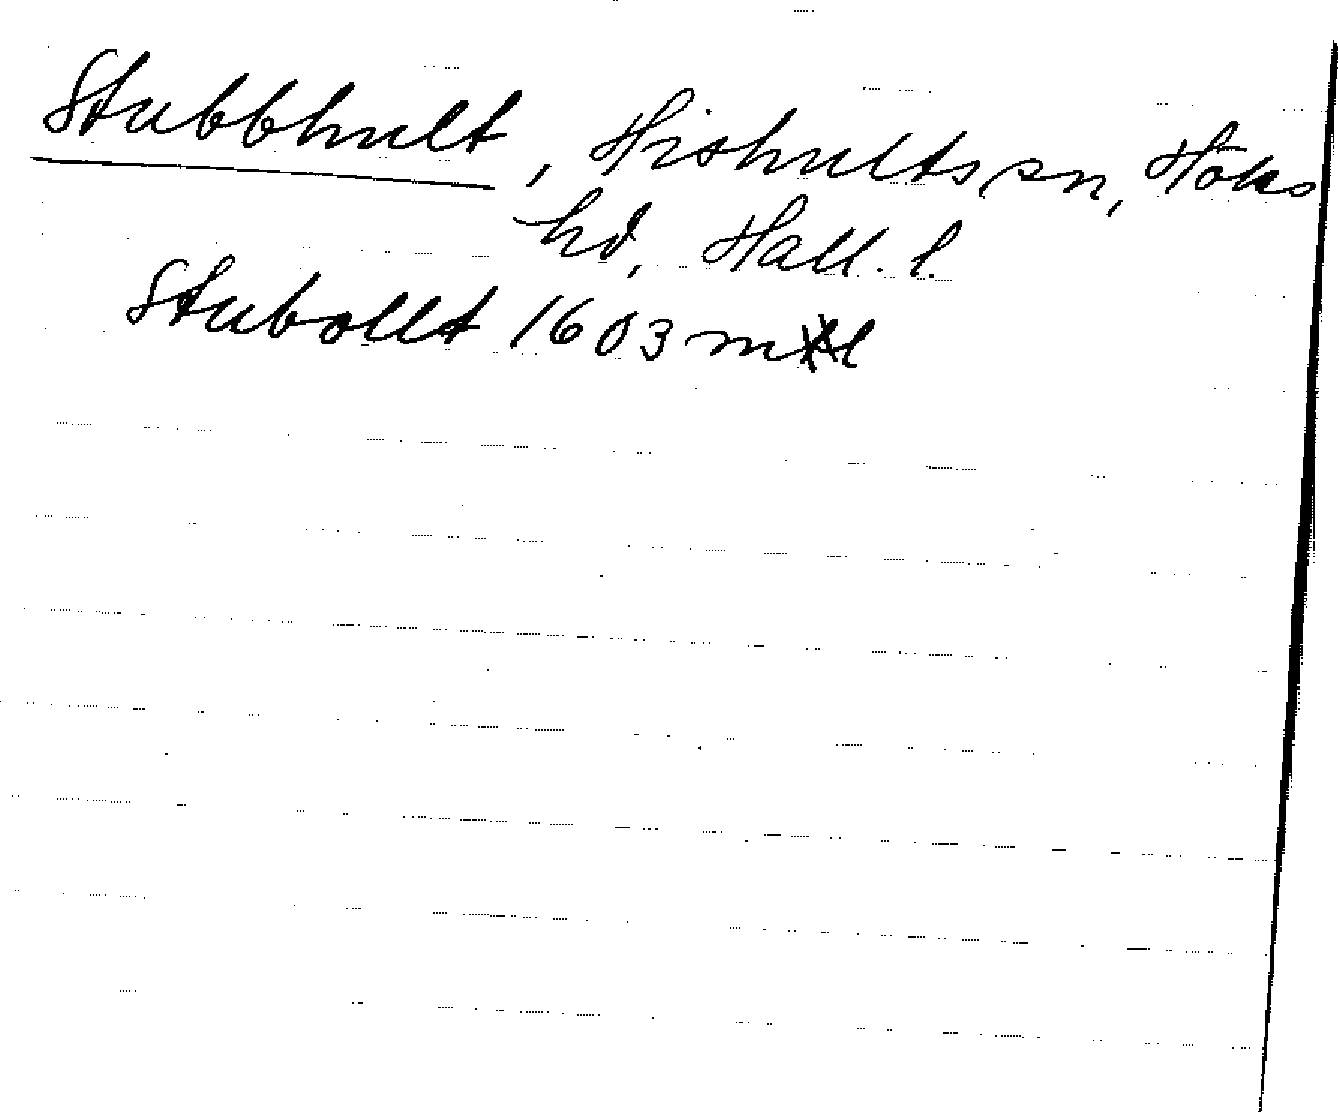 Stubbhult, Hishults sn, Höks
hd, Hall. l.
Stubollt 1603